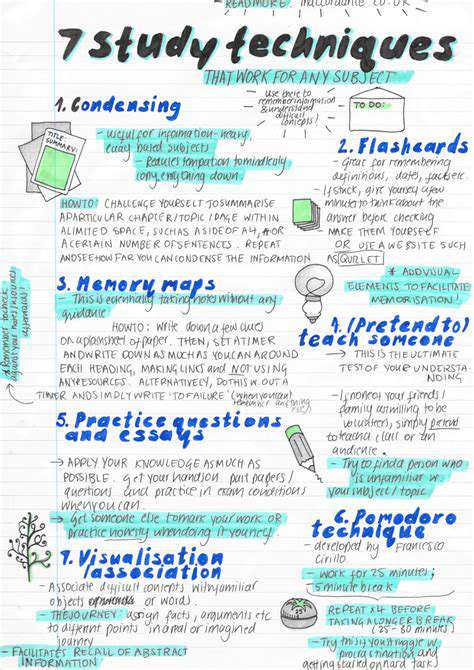 READ MORE:
7 study techniques
THAT WORK FOR ANY SUBJECT
Use these to
remember information
& understand
difficult
concepts!
TO DO:
1. Condensing
TITLE:
SUMMARY:
- useful for information-heavy,
essay based subjects
- Reduces temptation to mindlessly
copy everything down
HOW TO: CHALLENGE YOURSELF TO SUMMARISE
A PARTICULAR CHAPTER/TOPIC/PAGE WITHIN
A LIMITED SPACE, SUCH AS A SIDE OF A4, OR
A CERTAIN NUMBER OF SENTENCES. REPEAT
AND SEE HOW FAR YOU CAN CONDENSE THE INFORMATION
2. Flashcards
- Great for remembering
definitions, dates, facts etc.
- If stuck, give yourself a few
minutes to think about the
answer before checking
- MAKE THEM YOURSELF
OR USE A WEBSITE SUCH
AS QUIZLET
* ADD VISUAL
ELEMENTS TO FACILITATE
MEMORISATION!
3. Memory maps
- This is essentially taking notes without any
guidance
HOW TO: Write down a few cues
on a plain sheet of paper. Then, set a timer
and write down as much as you can around
each heading, making links and NOT using
any resources. Alternatively, do this w. out a
timer and simply write 'to failure' (when you can't
remember anything
* Remember to check
against your notes/resources
afterwards!
4. (Pretend to)
teach someone
→ THIS IS THE ULTIMATE
TEST OF YOUR UNDERSTA-
NDING
- If none of your friends/
family are willing to be
volunteers, simply pretend
to teach a class or an
audience.
- Try to find a person who
is unfamiliar w/
your subject/topic
5. Practice questions
and essays
→ APPLY YOUR KNOWLEDGE AS MUCH AS
POSSIBLE. Get your hands on past papers/
questions and practice in exam conditions
when you can.
→ Get someone else to mark your work OR
practice honesty when doing it yourself
6. Pomodoro
technique
- developed by Francesco
Cirillo
- Work for 25 minutes;
5 minute break
REPEAT X4 BEFORE
TAKING A LONGER BREAK
(25-30 minutes)
- Try this if you struggle w/
procrastination and
getting started on a task
7. Visualisation
/association
- Associate difficult concepts with familiar
objects or words.
- THE JOURNEY: assign facts, arguments etc
to different points in a real or imagined
journey
- FACILITATES RECALL OF ABSTRACT
INFORMATION